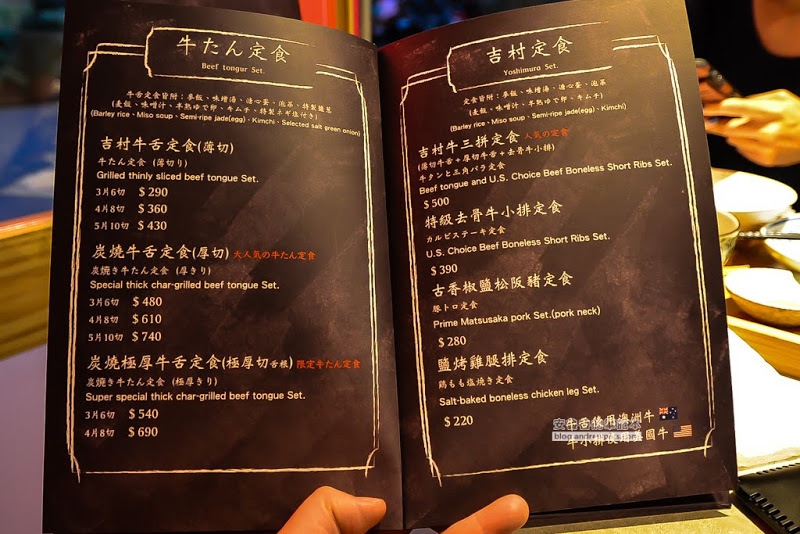 牛たん定食
Beef tongur Set.
牛舌定食皆附：麥飯、味增湯、溏心蛋、泡菜、特製鹽蔥
(麦飯、味噌汁、半熟ゆで卵、キムチ、特製ネギ塩付き)
(Barley rice、Miso soup、Semi-ripe jade(egg)、Kimchi、Selected salt green onion)
吉村牛舌定食(薄切)
牛たん定食 (薄切り)
Grilled thinly sliced beef tongue Set.
3片6切 $ 290
4片8切 $ 360
5片10切 $ 430
炭燒牛舌定食(厚切) 大人気の牛たん定食
炭焼き牛たん定食 (厚きり)
Special thick char-grilled beef tongue Set.
3片6切 $ 480
4片8切 $ 610
5片10切 $ 740
炭燒極厚牛舌定食(極厚切舌根) 限定牛たん定食
炭焼き牛たん定食 (極厚きり)
Super special thick char-grilled beef tongue Set.
3片6切 $ 540
4片8切 $ 690
吉村定食
Yoshimura Set.
定食皆附：麥飯、味增湯、溏心蛋、泡菜
(麦飯、味噌汁、半熟ゆで卵、キムチ)
(Barley rice、Miso soup、Semi-ripe jade(egg)、Kimchi)
吉村牛三拼定食 人気の定食
(薄切牛舌+厚切牛舌+去骨牛小排)
牛タンと三角バラ定食
Beef tongue and U.S. Choice Beef Boneless Short Ribs Set.
$ 500
特級去骨牛小排定食
カルビステーキ定食
U.S. Choice Beef Boneless Short Ribs Set.
$ 390
古香椒鹽松阪豬定食
豚トロ定食
Prime Matsusaka pork Set.(pork neck)
$ 280
鹽烤雞腿排定食
鶏もも塩焼き定食
Salt-baked boneless chicken leg Set.
$ 220
牛舌使用澳洲牛
牛小排使用美國牛